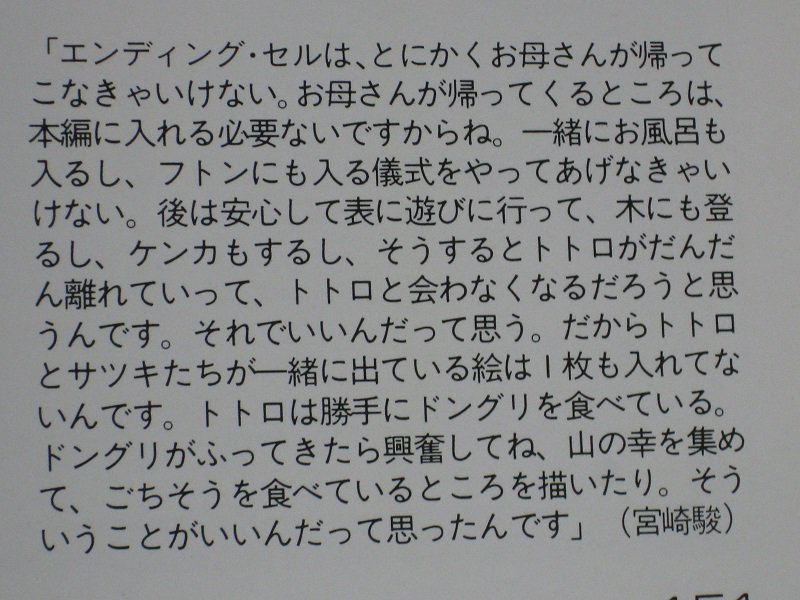 「エンディング・セルは、とにかくお母さんが帰って
こなきゃいけない。お母さんが帰ってくるところは、
本編に入れる必要ないですからね。一緒にお風呂も
入るし、フトンにも入る儀式をやってあげなきゃい
けない。後は安心して表に遊びに行って、木にも登
るし、ケンカもするし、そうするとトトロがだんだ
ん離れていって、トトロと会わなくなるだろうと思
うんです。それでいいんだって思う。だからトトロ
とサツキたちが一緒に出ている絵は1枚も入れてな
いんです。トトロは勝手にドングリを食べている。
ドングリがふってきたら興奮してね、山の幸を集め
て、ごちそうを食べているところを描いたり。そう
いうことがいいんだって思ったんです」（宮崎駿）